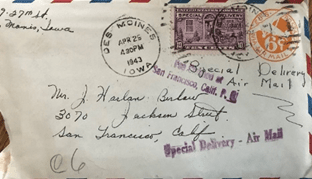 27th St.
Moines, Iowa
DES MOINES
APR 25
4 30 PM
1943
IOWA
SPECIAL DELIVERY
TEN CENTS
6¢
San Francisco, Calif.
Special Delivery
Air
Mail
Mr. J. Harlan
3070 Jackson Street
San Francisco Calif.
Special Delivery - Air Mail